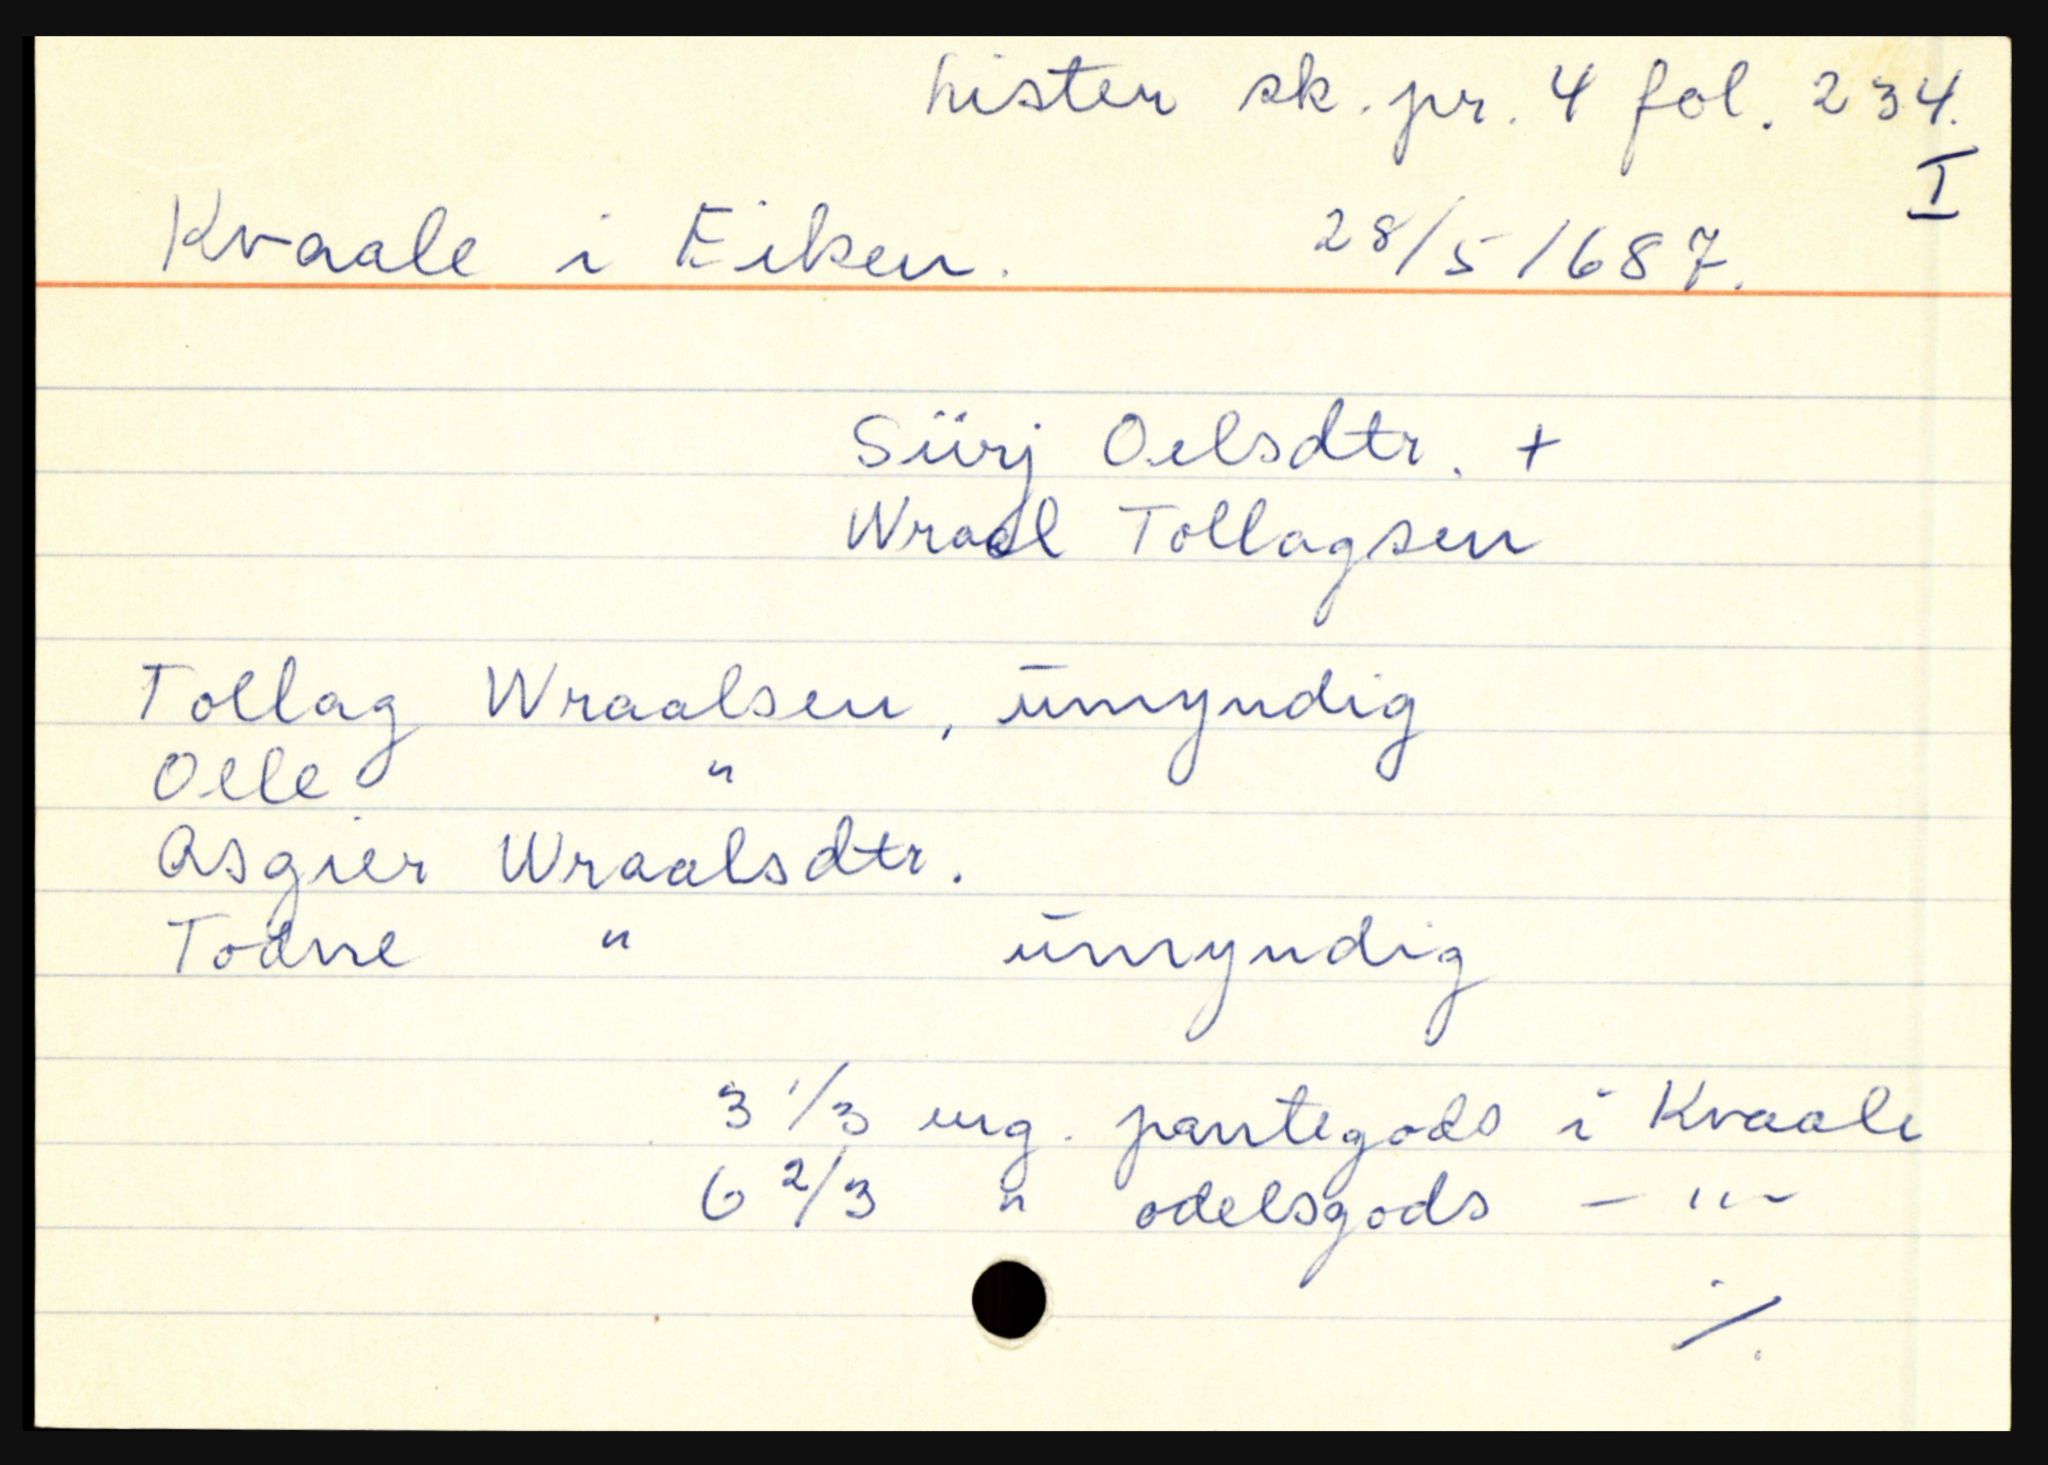 Lister sk. pr. 4 fol. 234.
I
Kvaale i Eiken. 28/5 1687.
Siirj Oelsdtr. +
Wraal Tollagsen
Tollag Wraalsen, umyndig
Oele "
Asgier Wraalsdtr.
Todne " umyndig
3 1/3 eng. pantegods i Kvaale
6 2/3 " odelsgods - " -
./.